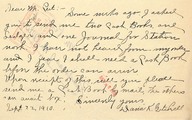 Dear Mr. Get:- Some weeks ago I asked
you to send me two Cash Books one
Ledger and one Journal for Station
work. I have not heard from my order
and I fear I shall need a Cash Book
before the order can arrive.
Upon receipt of this will you please
send me a Cash Book by mail. The others
can await box. Sincerely yours,
Sept 22, 1910. Daniel K. Getchell